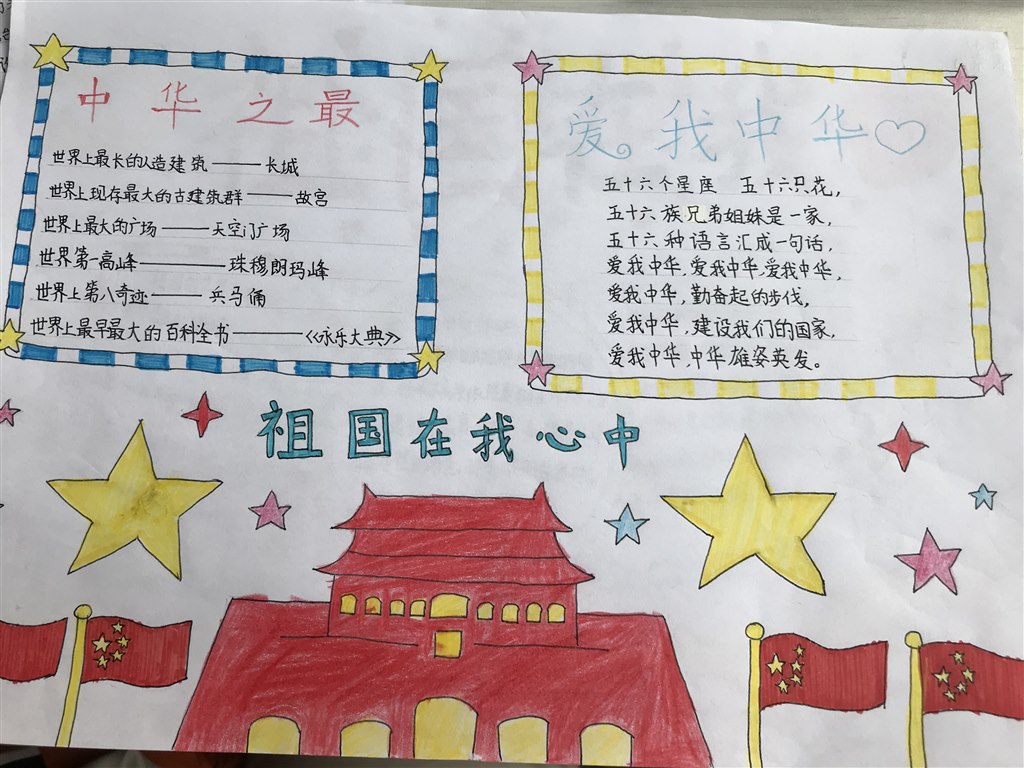 中华之最
世界上最长的人造建筑——长城
世界上现存最大的古建筑群——故宫
世界上最大的广场——天空门广场
世界第一高峰——珠穆朗玛峰
世界上第八奇迹——兵马俑
世界上最早最大的百科全书——《咏乐大典》
爱我中华
五十六个星座 五十六只花,
五十六族兄弟姐妹是一家,
五十六种语言汇成一句话,
爱我中华,爱我中华,爱我中华,
爱我中华,勤奋起的步伐,
爱我中华,建设我们的国家,
爱我中华,中华雄姿英发。
祖国在我心中